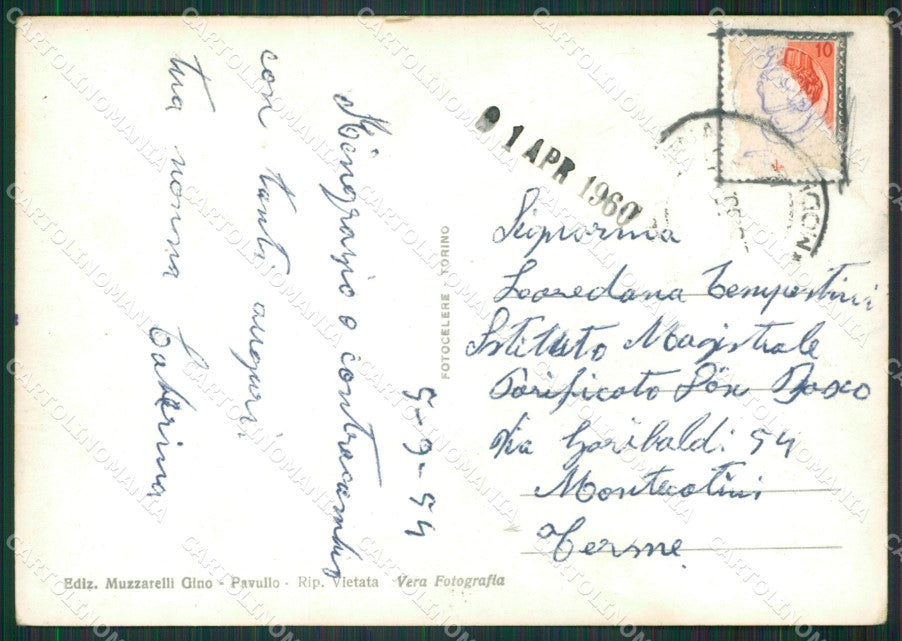 5-9-54
Ringrazio e contracambio
con tanti auguri
tua nonna Caterina
FOTOCELERE - TORINO
Ediz. Muzzarelli Gino - Pavullo - Rip. Vietata Vera Fotografia
10
1 APR 1960
Signorina
Loredana Tempestini
Istituto Magistrale
Parificato Don Bosco
Via Garibaldi 54
Montecatini
Terme
CARTOLINOMANIA